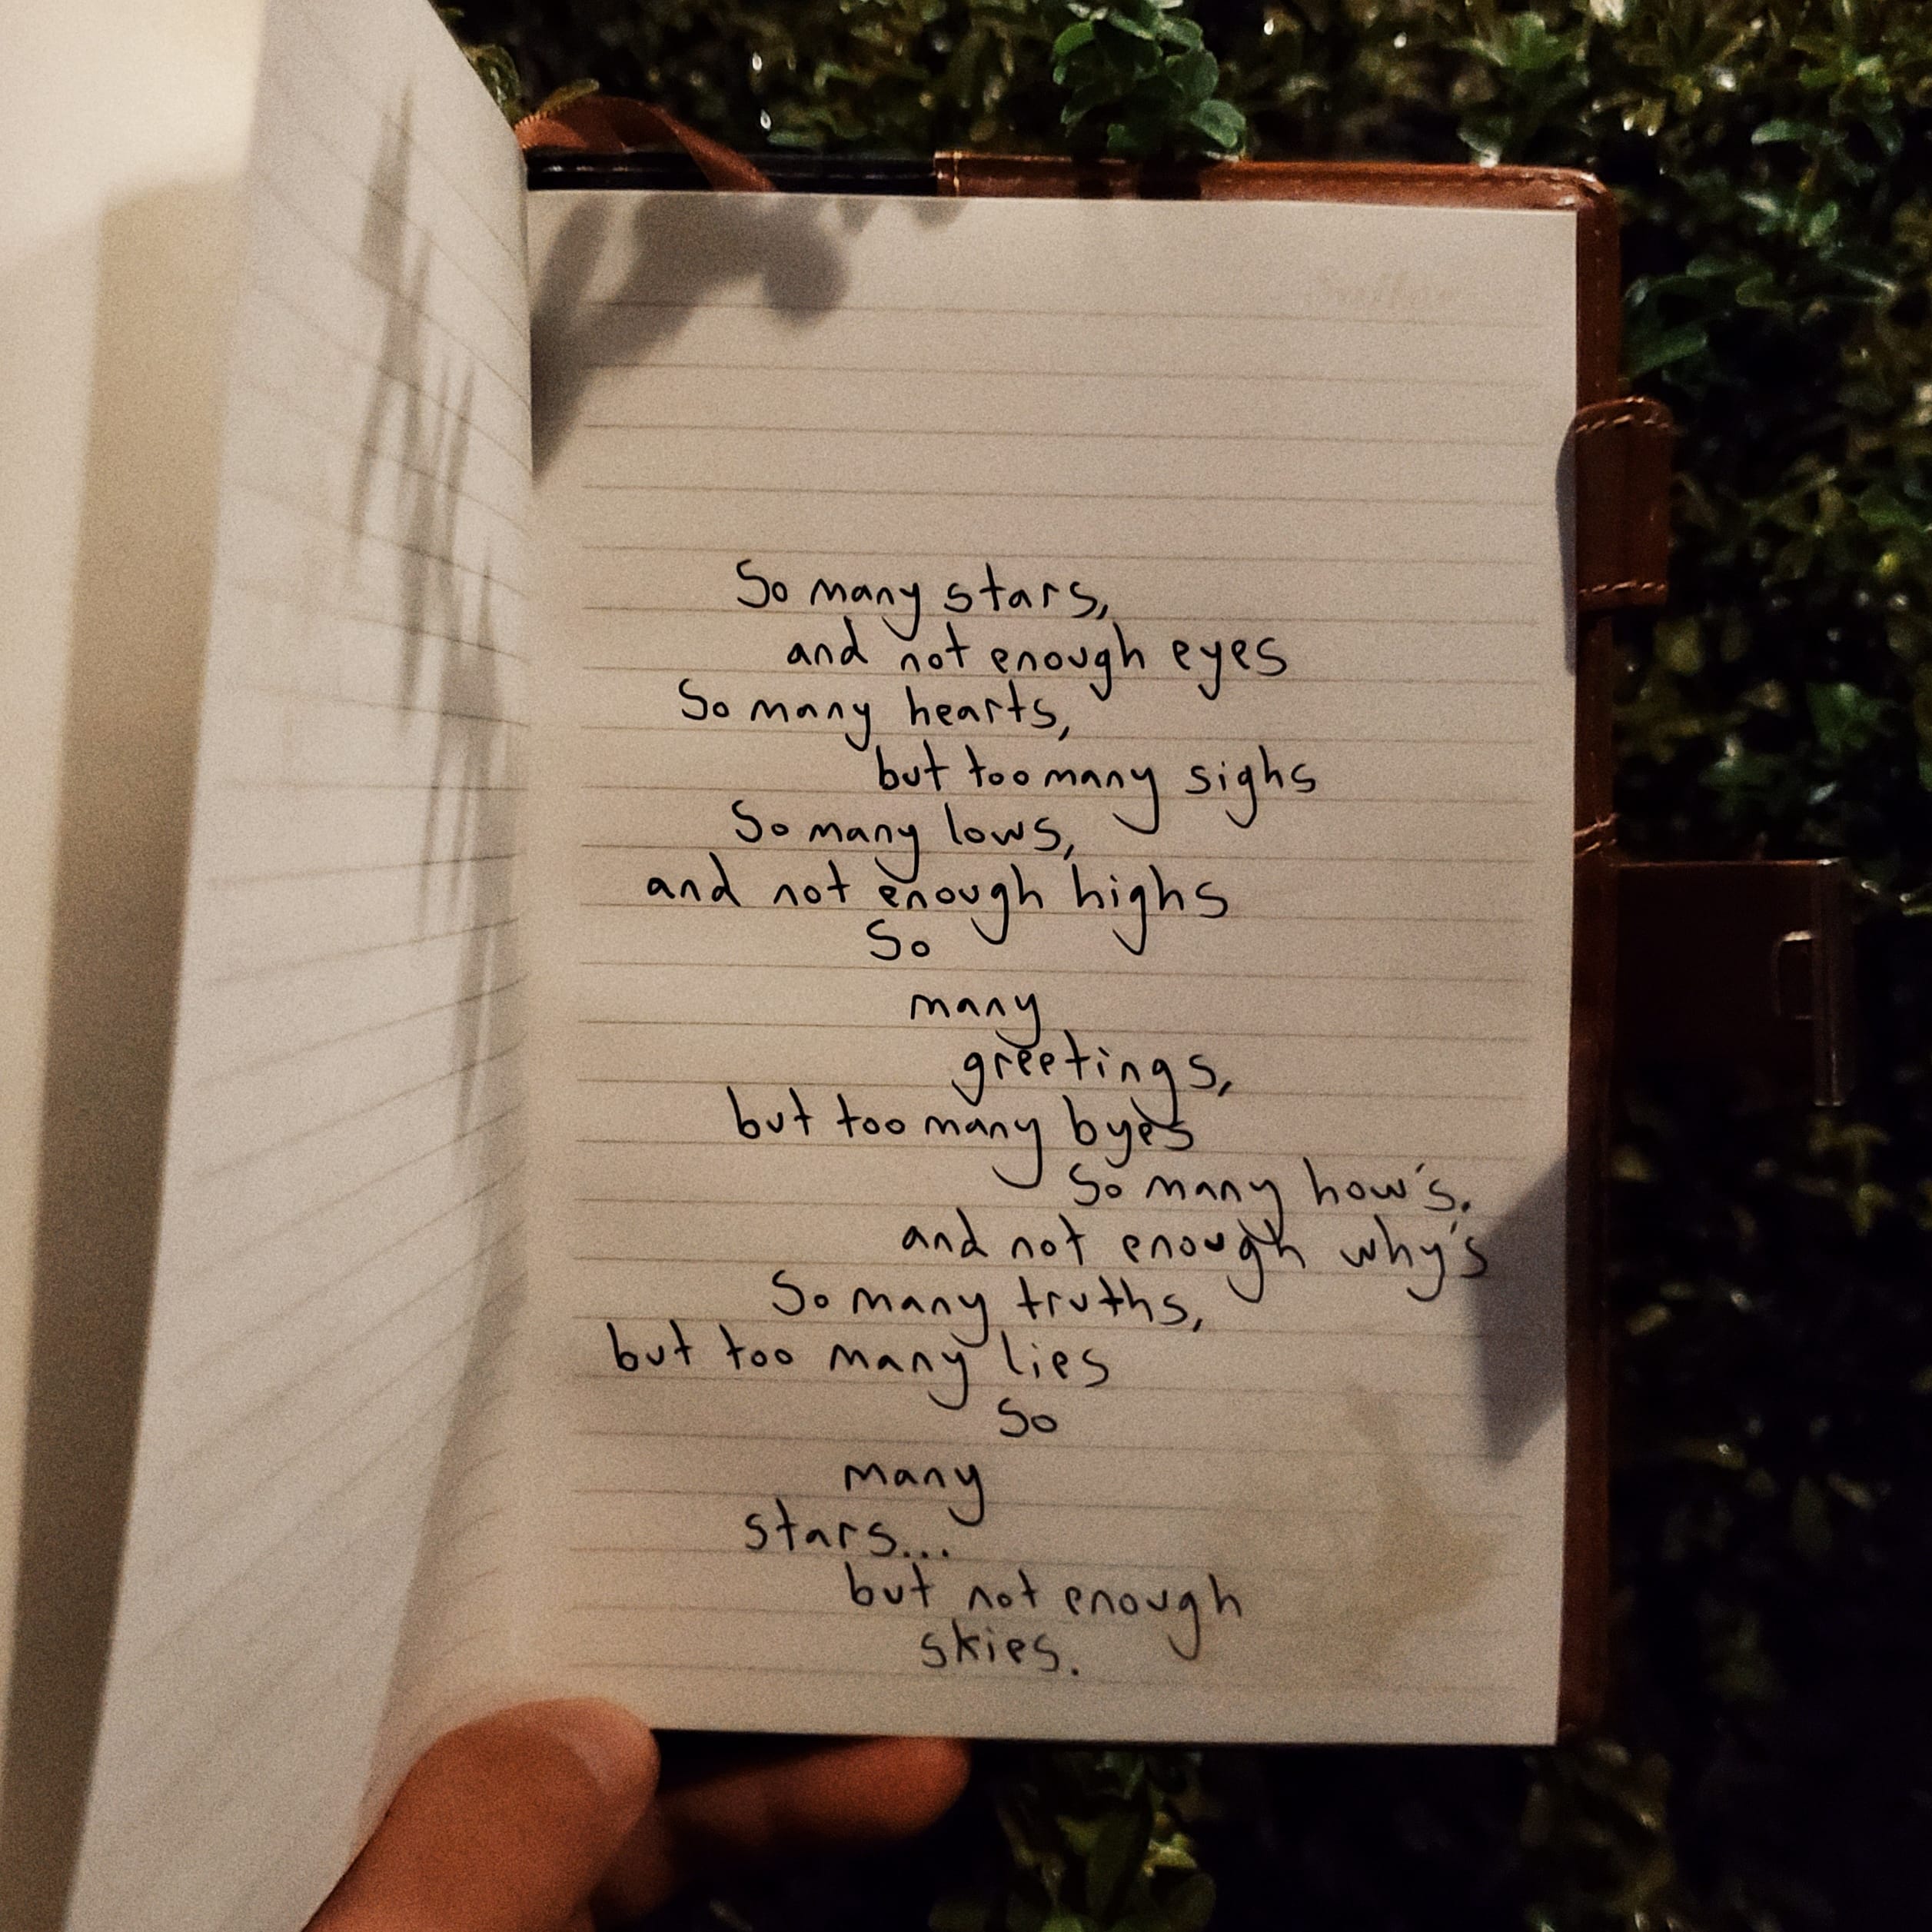 So many stars,
and not enough eyes
So many hearts,
but too many sighs
So many lows,
and not enough highs
So
many
greetings,
but too many byes
So many how's,
and not enough why's
So many truths,
but too many lies
So
many
stars...
but not enough
skies.